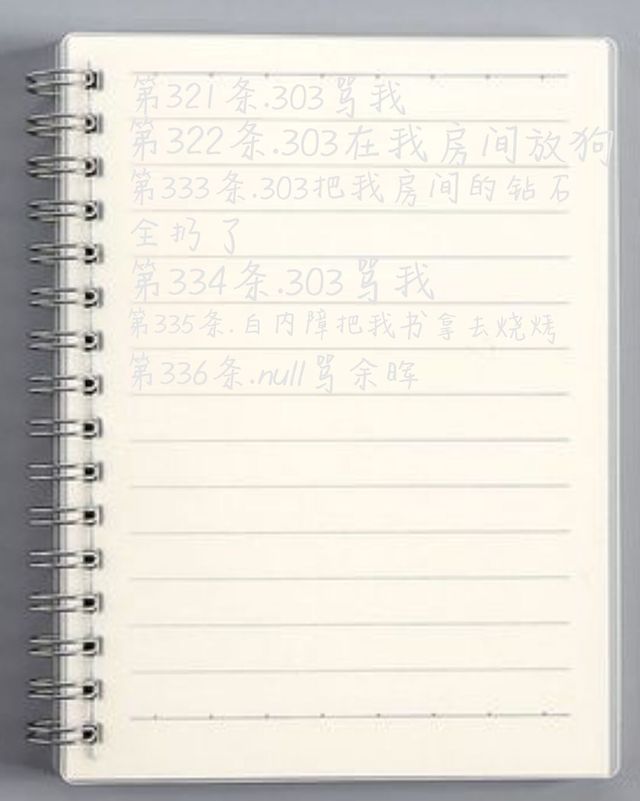 第321条.303骂我
第322条.303在我房间放狗
第333条.303把我房间的钻石
全扔了
第334条.303骂我
第335条.白内障把我书拿去烧烤
第336条.null骂余晖